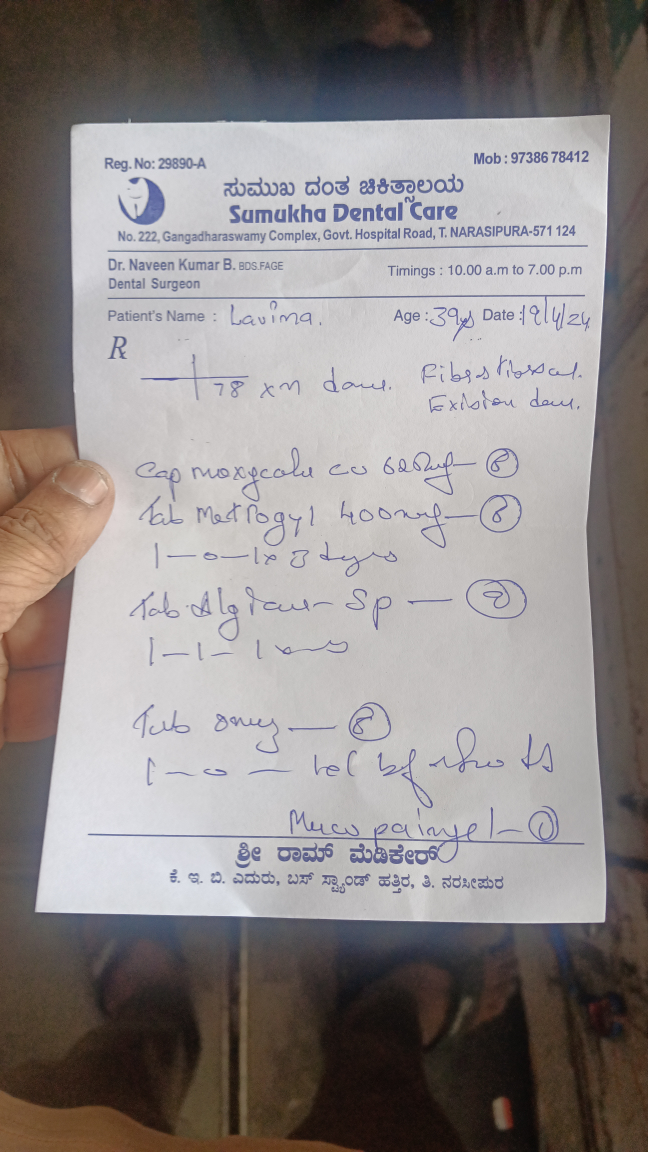 Reg. No: 29890-A
Mob : 97386 78412
ಸುಮುಖ ದಂತ ಚಿಕಿತ್ಸಾಲಯ
Sumukha Dental Care
No. 222, Gangadharaswamy Complex, Govt. Hospital Road, T. NARASIPURA-571 124
Dr. Naveen Kumar B. BDS.FAGE
Timings : 10.00 a.m to 7.00 p.m
Dental Surgeon
Patient's Name : Lavina. Age : 39ys Date : 19/4/24
R
78 xn done.
Exision done.
Cap moxycale cv 625mg — 8
Tab Metrogyl 400mg — 8
1 — 0 — 1 x 3 dys
Tab. - Sp —
1 — 1 — 1
Tab — 8
1 — 0 —
Muco paingel — 1
ಶ್ರೀ ರಾಮ್ ಮೆಡಿಕೇರ್
ಕೆ. ಇ. ಬಿ. ಎದುರು, ಬಸ್ ಸ್ಟ್ಯಾಂಡ್ ಹತ್ತಿರ, ತಿ. ನರಸೀಪುರ